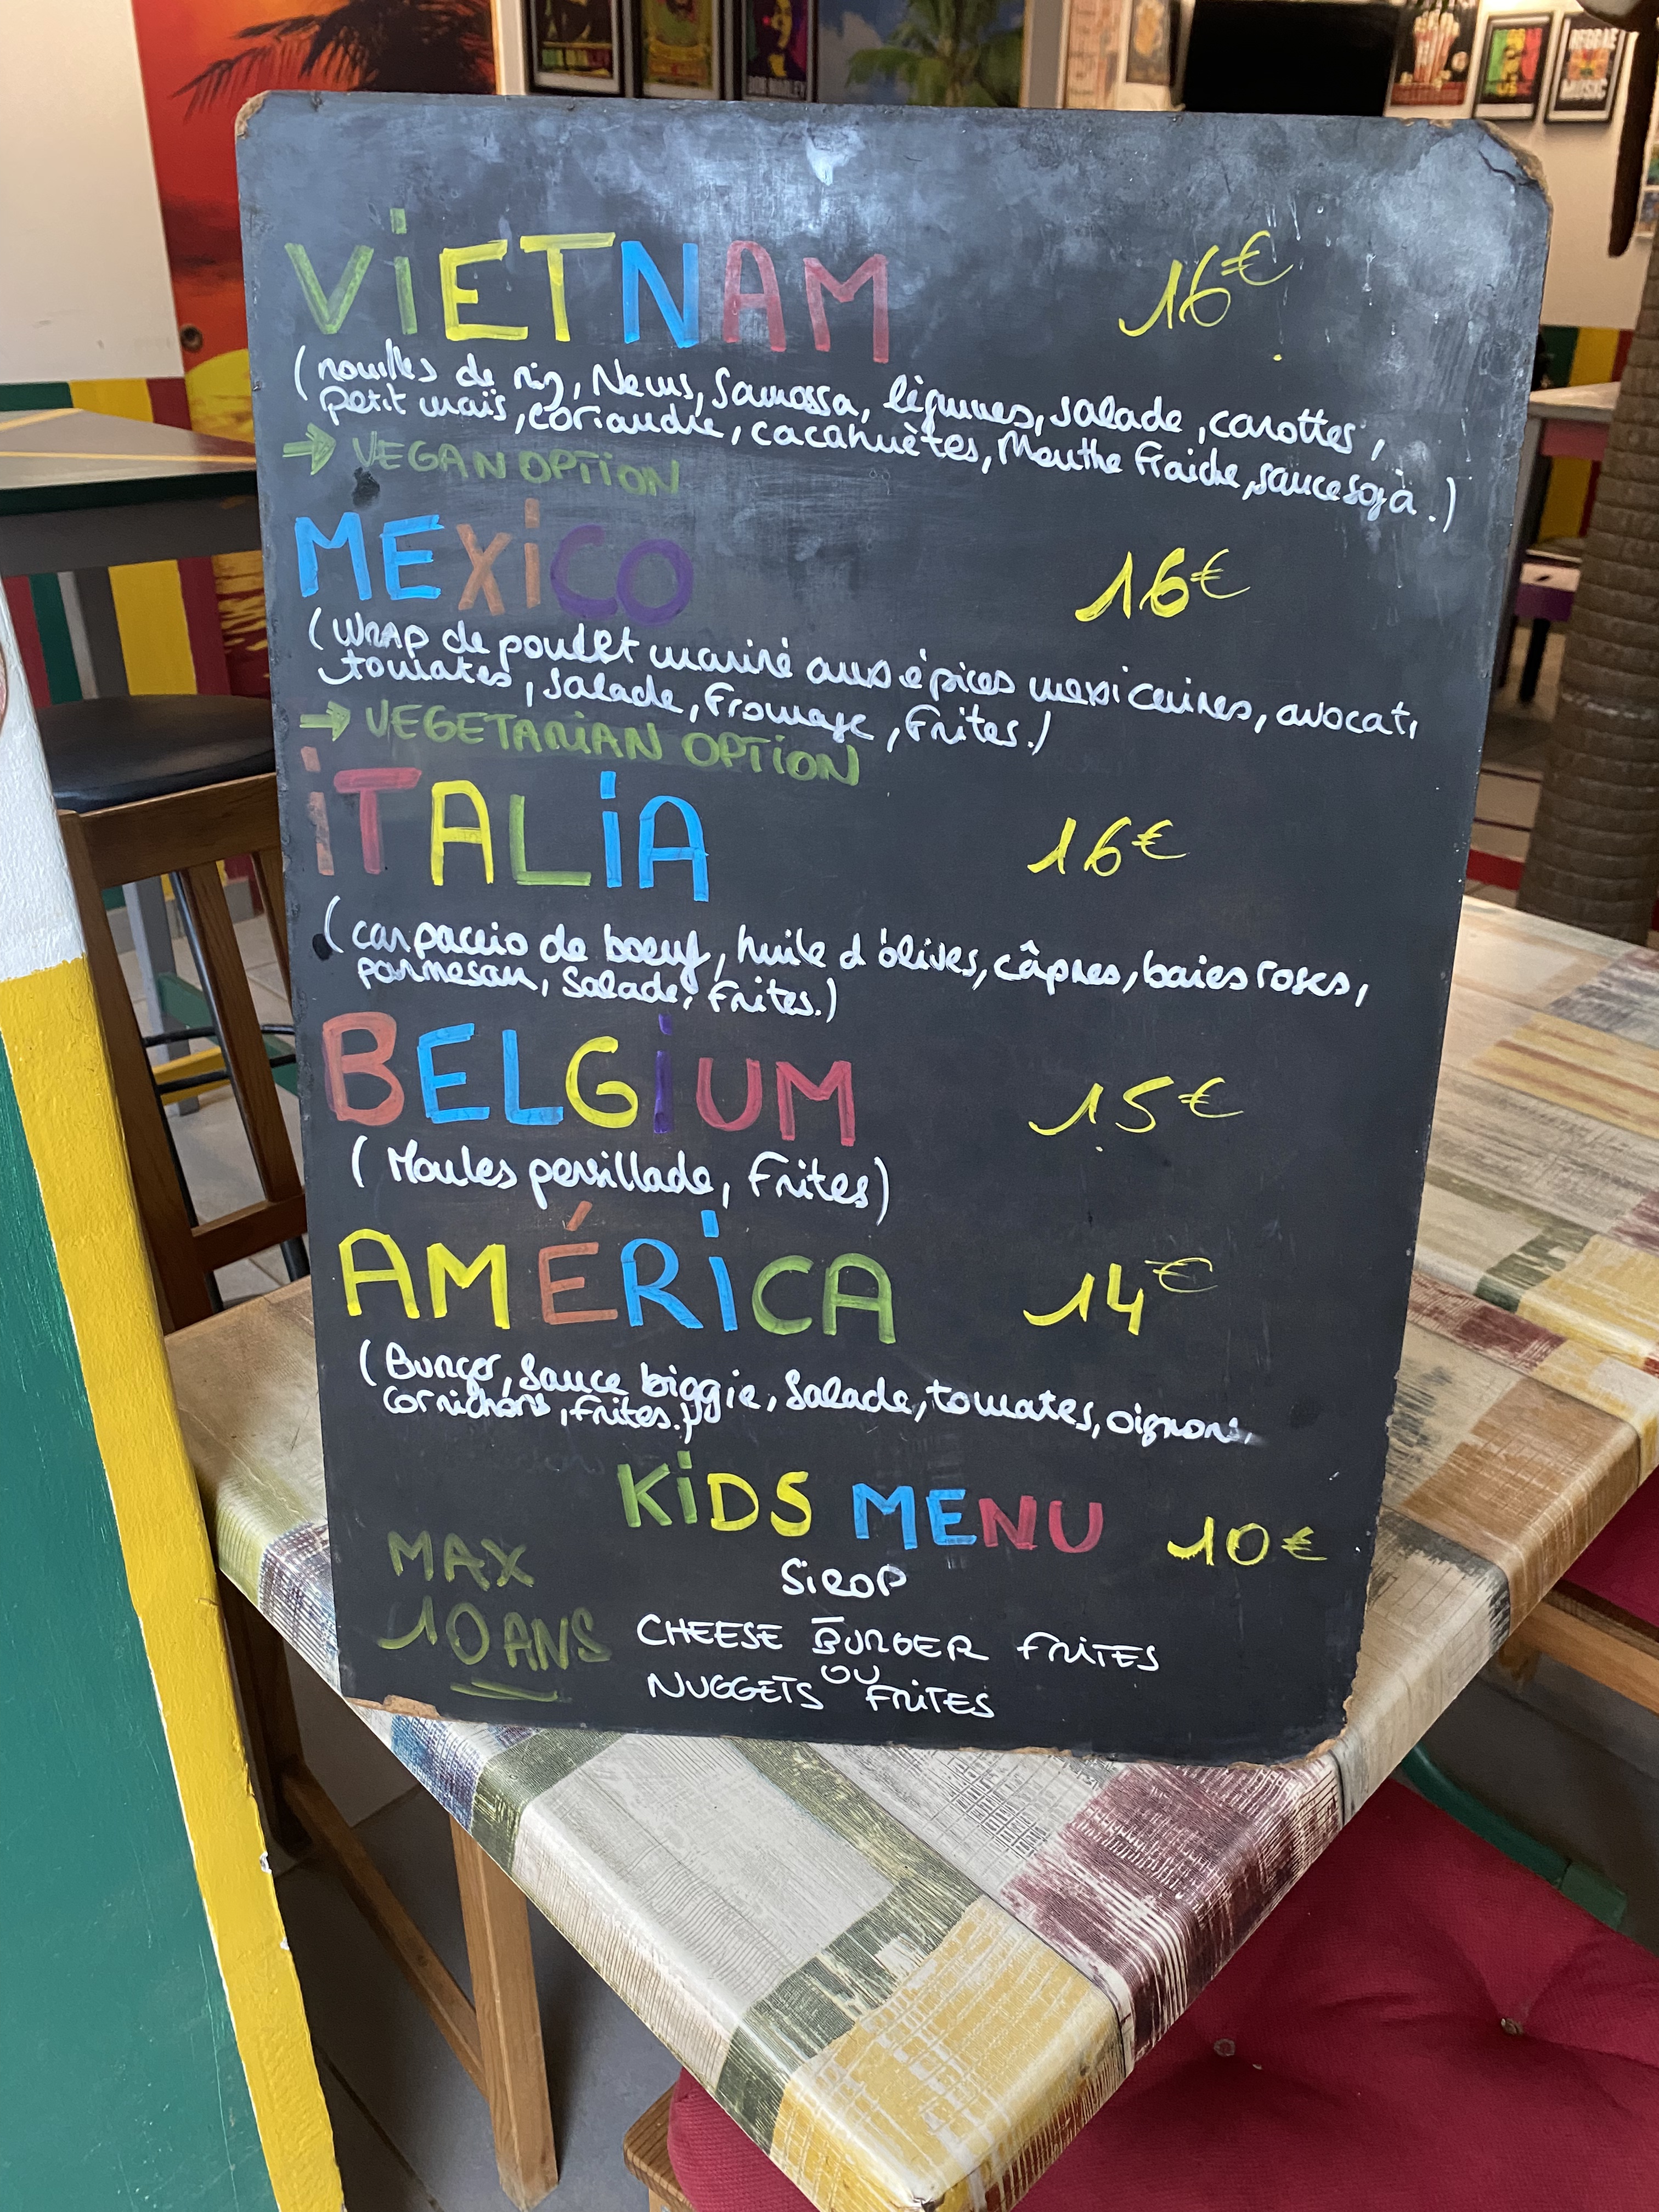 BOB MARLEY
REGGAE
MUSIC
REGGAE
MUSIC
ViETNAM 16€
(nouilles de riz, Nems, Samossa, légumes, salade, carottes,
petit maïs, coriandre, cacahuètes, Menthe Fraiche, sauce soja.)
→ VEGAN OPTION
MEXiCO 16€
(WRAP de poulet mariné aux épices mexicaines, avocat,
tomates, salade, Fromage, Frites.)
→ VEGETARiAN OPTiON
iTALiA 16€
(carpaccio de boeuf, huile d'olives, câpres, baies roses,
parmesan, Salade, Frites.)
BELGiUM 15€
(Moules persillade, Frites)
AMÉRiCA 14€
(Burger, Sauce biggie, Salade, tomates, oignons,
cornichons, frites.)
KiDS MENU 10€
MAX
10 ANS
SiROP
CHEESE BURGER FRiTES
OU
NUGGETS FRiTES